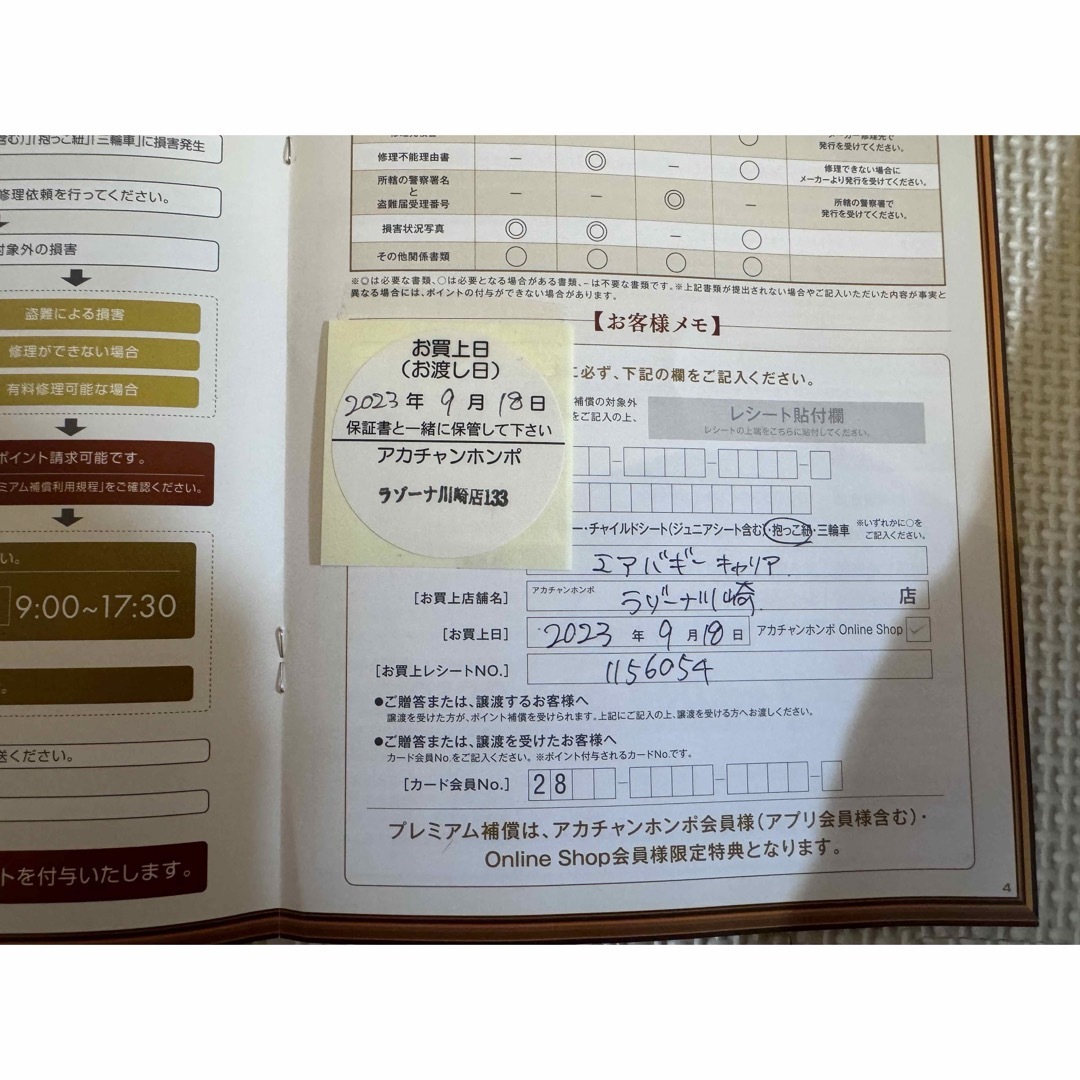 含む)」「抱っこ紐」「三輪車」に損害発生
修理依頼を行ってください。
対象外の損害
盗難による損害
修理ができない場合
有料修理可能な場合
ポイント請求可能です。
ミアム補償利用規程」をご確認ください。
い。
9:00~17:30
。
送ください。
トを付与いたします。
発行を受けてください。
修理不能理由書 － ◎ － ○ 修理できない場合に
メーカーより発行を受けてください。
所轄の警察署名
と
盗難届受理番号 － － ◎ － 所轄の警察署で
発行を受けてください。
損害状況写真 ◎ ◎ － ○
その他関係書類 ○ ○ ○ ○
※◎は必要な書類、○は必要となる場合がある書類、－は不要な書類です。※上記書類が提出されない場合やご記入いただいた内容が事実と
異なる場合には、ポイントの付与ができない場合があります。
【お客様メモ】
お買上日
(お渡し日)
2023年 9月 18日
保証書と一緒に保管して下さい
アカチャンホンポ
ラゾーナ川崎店133
に必ず、下記の欄をご記入ください。
補償の対象外
をご記入の上、
レシート貼付欄
レシートの上端をこちらに貼付してください。
ー・チャイルドシート(ジュニアシート含む)・抱っこ紐・三輪車 ※いずれかに○を
ご記入ください。
エアバギー キャリア
[お買上店舗名] アカチャンホンポ ラゾーナ川崎 店
[お買上日] 2023 年 9 月 18 日 アカチャンホンポ Online Shop
[お買上レシートNO.] 1156054
●ご贈答または、譲渡するお客様へ
譲渡を受けた方が、ポイント補償を受けられます。上記にご記入の上、譲渡を受ける方へお渡しください。
●ご贈答または、譲渡を受けたお客様へ
カード会員No.をご記入ください。※ポイント付与されるカードNo.です。
[カード会員No.] 28
プレミアム補償は、アカチャンホンポ会員様(アプリ会員様含む)・
Online Shop会員様限定特典となります。
4